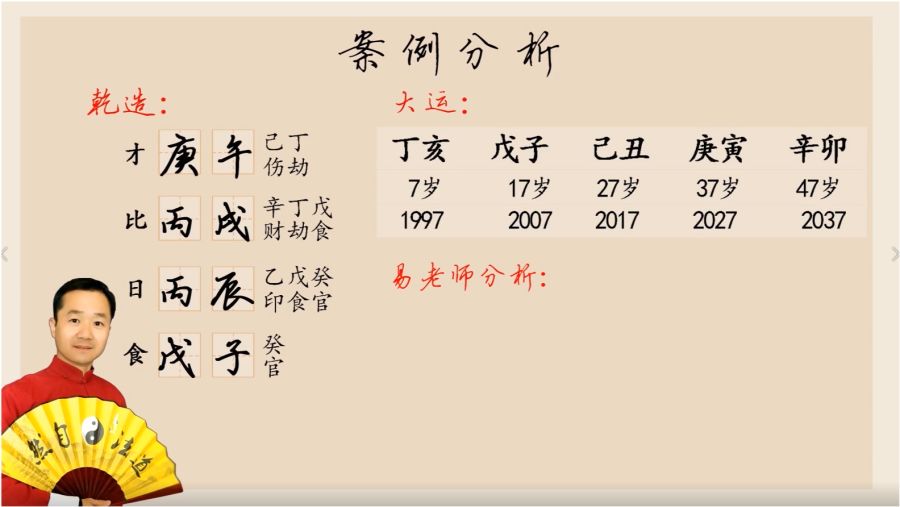 案例分析
乾造：
大运：
才 庚午 己丁
伤劫
比 丙戌 辛丁戊
财劫食
日 丙辰 乙戊癸
印食官
食 戊子 癸
官
丁亥 戊子 己丑 庚寅 辛卯
7岁 17岁 27岁 37岁 47岁
1997 2007 2017 2027 2037
易老师分析：
然自法道